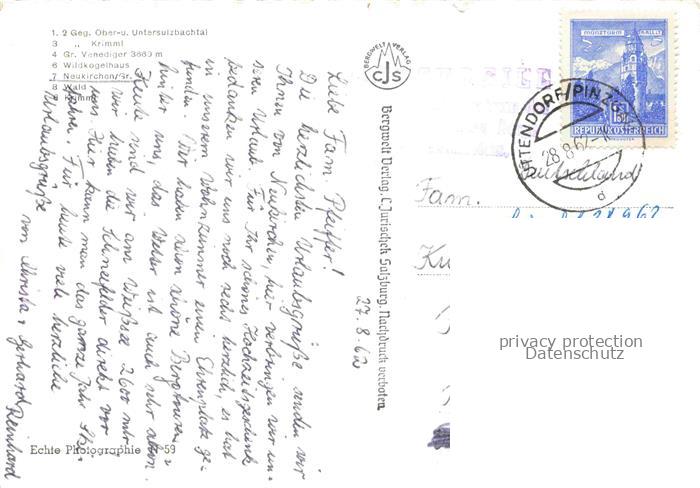 1. 2 Geg. Ober-u. Untersulzbachtal
3 „ Krimml
4 Gr. Venediger 3660 m
6 Wildkogelhaus
7 Neukirchen/Gr.
8 Wald
9 Krimml
Liebe Fam. Pfeiffer!
Die herzlichsten Urlaubsgrüße senden wir
Ihnen von Neukirchen, hier verbringen wir un-
sern Urlaub. Für Ihr schönes Hochzeitsgeschenk
bedanken wir uns noch recht herzlich, es hat
in unserem Wohnzimmer einen Ehrenplatz ge-
funden. Wir haben schon schöne Bergtouren
hinter uns, das Wetter ist auch sehr schön.
Heute sind wir am Weißsee 2600 mtr.
wir haben die Schneefelder direkt vor
uns. Hier kann man das ganze Jahr Ski-
fahren. Für heute viele herzliche
Urlaubsgrüße
von Christa u. Gerhard Reinhard
27.8.62
Echte Photographie 59
BERGWELT VERLAG
CJS
Bergwelt Verlag, C. Jurischek Salzburg, Nachdruck verboten
MÜNZTURM HALL I. T.
1.50
REPUBLIK ÖSTERREICH
UTTENDORF/PINZG.
28.8.62
d
Deutschland
Fam.
privacy protection
Datenschutz